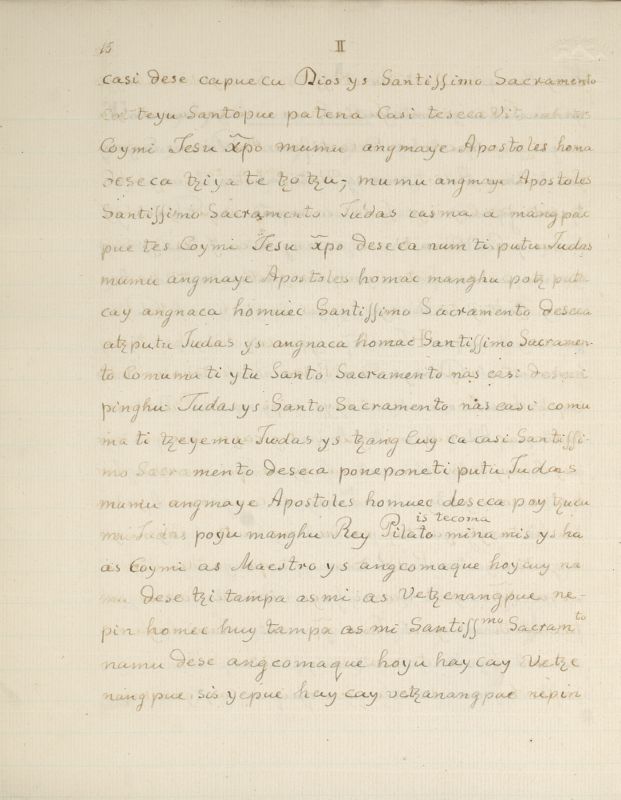 15
II
casi dese capuecu Dios ys Santissimo Sacramento
teyu Santopue patena Casi teseca
Coymi Jesu x̃po mumu angmaye Apostoles hona
deseca tziyate tzotzu; mumu angmaye Apostoles
Santissimo Sacramento Judas casma a mangpac
pue tes Coymi Jesu x̃po deseca numti putu Judas
mumu angmaye Apostoles homac manghu potz
cay angnaca homuec Santissimo Sacramento deseca
atzputu Judas ys angnaca homac Santissimo Sacramen-
to Comumati ytu Santo Sacramento nas casi
pinghu Judas ys Santo Sacramento nas casi comu
ma ti tzeyemu Judas ys tzang Cuy ca casi Santissi-
mo Sacramento deseca poneponeti putu Judas
mumu angmaye Apostoles homuec deseca poy tzucu
Judas poyu manghu Rey Pilato is tecoma mina mis ys ha
as Coymi as Maestro ys angcomaque hoycuy na
dese tzi tampa as mi as Vetzenangpue ne-
pin homec huy tampa as mi Santissmo Sacramto
namu dese angcomaque hoyu hay cay Vetze
nang pue sis yepue hay cay vetzanangpue nepin